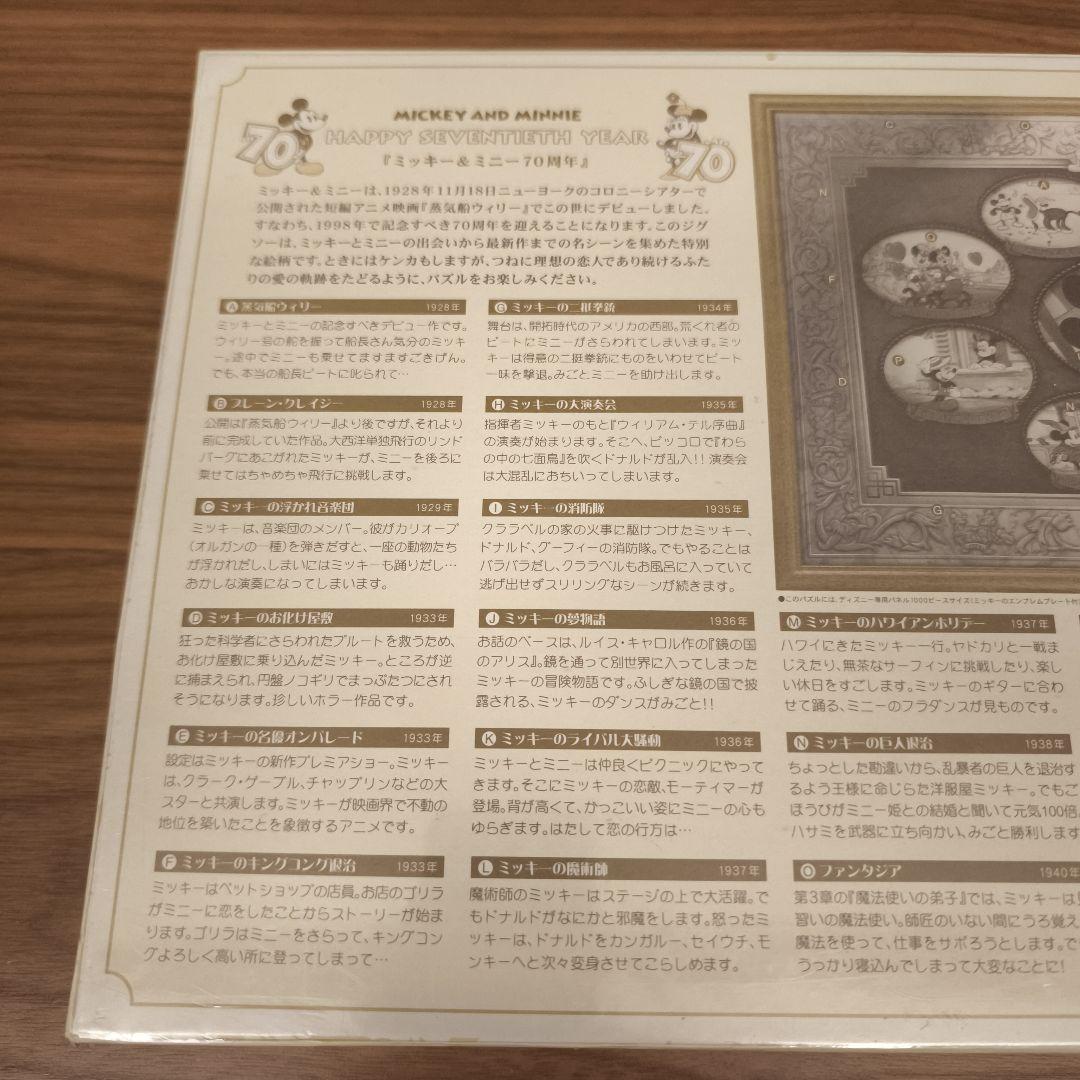 MICKEY AND MINNIE
70 HAPPY SEVENTIETH YEAR 70
『ミッキー&ミニー70周年』
ミッキー&ミニーは、1928年11月18日ニューヨークのコロニーシアターで
公開された短編アニメ映画『蒸気船ウィリー』でこの世にデビューしました。
すなわち、1998年で記念すべき70周年を迎えることになります。このジグ
ソーは、ミッキーとミニーの出会いから最新作までの名シーンを集めた特別
な絵柄です。ときにはケンカもしますが、つねに理想の恋人であり続けるふた
りの愛の軌跡をたどるように、パズルをお楽しみください。
A 蒸気船ウィリー 1928年
ミッキーとミニーの記念すべきデビュー作です。
ウィリー号の舵を握って船長さん気分のミッキ
ー。途中でミニーも乗せてますますごきげん。
でも、本当の船長ピートに叱られて…
B プレーン・クレイジー 1928年
公開は『蒸気船ウィリー』より後ですが、それより
前に完成していた作品。大西洋単独飛行のリンド
バーグにあこがれたミッキーが、ミニーを後ろに
乗せてはちゃめちゃ飛行に挑戦します。
C ミッキーの浮かれ音楽団 1929年
ミッキーは、音楽団のメンバー。彼がカリオープ
(オルガンの一種)を弾きだすと、一座の動物たち
が浮かれだし、しまいにはミッキーも踊りだし…
おかしな演奏になってしまいます。
D ミッキーのお化け屋敷 1933年
狂った科学者にさらわれたプルートを救うため、
お化け屋敷に乗り込んだミッキー。ところが逆
に捕まえられ、円盤ノコギリでまっぷたつにされ
そうになります。珍しいホラー作品です。
E ミッキーの名優オンパレード 1933年
設定はミッキーの新作プレミアショー。ミッキー
は、クラーク・ゲーブル、チャップリンなどの大
スターと共演します。ミッキーが映画界で不動の
地位を築いたことを象徴するアニメです。
F ミッキーのキングコング退治 1933年
ミッキーはペットショップの店員。お店のゴリラ
がミニーに恋をしたことからストーリーが始ま
ります。ゴリラはミニーをさらって、キングコン
グよろしく高い所に登ってしまって…
G ミッキーの二挺拳銃 1934年
舞台は、開拓時代のアメリカの西部。荒くれ者の
ピートにミニーがさらわれてしまいます。ミッ
キーは得意の二挺拳銃にものをいわせてピート
一味を撃退。みごとミニーを助け出します。
H ミッキーの大演奏会 1935年
指揮者ミッキーのもと『ウィリアム・テル序曲』
の演奏が始まります。そこへ、ピッコロで『わら
の中の七面鳥』を吹くドナルドが乱入!!演奏会
は大混乱におちいってしまいます。
I ミッキーの消防隊 1935年
クララベルの家の火事に駆けつけたミッキー、
ドナルド、グーフィーの消防隊。でもやることは
バラバラだし、クララベルもお風呂に入っていて
逃げ出せずスリリングなシーンが続きます。
J ミッキーの夢物語 1936年
お話のベースは、ルイス・キャロル作の『鏡の国
のアリス』。鏡を通って別世界に入ってしまった
ミッキーの冒険物語です。ふしぎな鏡の国で披
露される、ミッキーのダンスがみごと!!
K ミッキーのライバル大騒動 1936年
ミッキーとミニーは仲良くピクニックにやって
きます。そこにミッキーの恋敵、モーティマーが
登場。背が高くて、かっこいい姿にミニーの心も
ゆらぎます。はたして恋の行方は…
L ミッキーの魔術師 1937年
魔術師のミッキーはステージの上で大活躍。で
もドナルドがなにかと邪魔をします。怒ったミ
ッキーは、ドナルドをカンガルー、セイウチ、モ
ンキーへと次々変身させてこらしめます。
●このパズルには、ディズニー専用パネル1000ピースサイズ(ミッキーのエンブレムプレート付
M ミッキーのハワイアンホリデー 1937年
ハワイにきたミッキー一行。ヤドカリと一戦ま
じえたり、無茶なサーフィンに挑戦したり、楽し
い休日をすごします。ミッキーのギターに合わ
せて踊る、ミニーのフラダンスが見ものです。
N ミッキーの巨人退治 1938年
ちょっとした勘違いから、乱暴者の巨人を退治す
るよう王様に命じらた洋服屋ミッキー。でもご
ほうびがミニー姫との結婚と聞いて元気100倍。
ハサミを武器に立ち向かい、みごと勝利します
O ファンタジア 1940年
第3章の『魔法使いの弟子』では、ミッキーは
習いの魔法使い。師匠のいない間にうろ覚え
魔法を使って、仕事をサボろうとします。で
うっかり寝込んでしまって大変なことに!